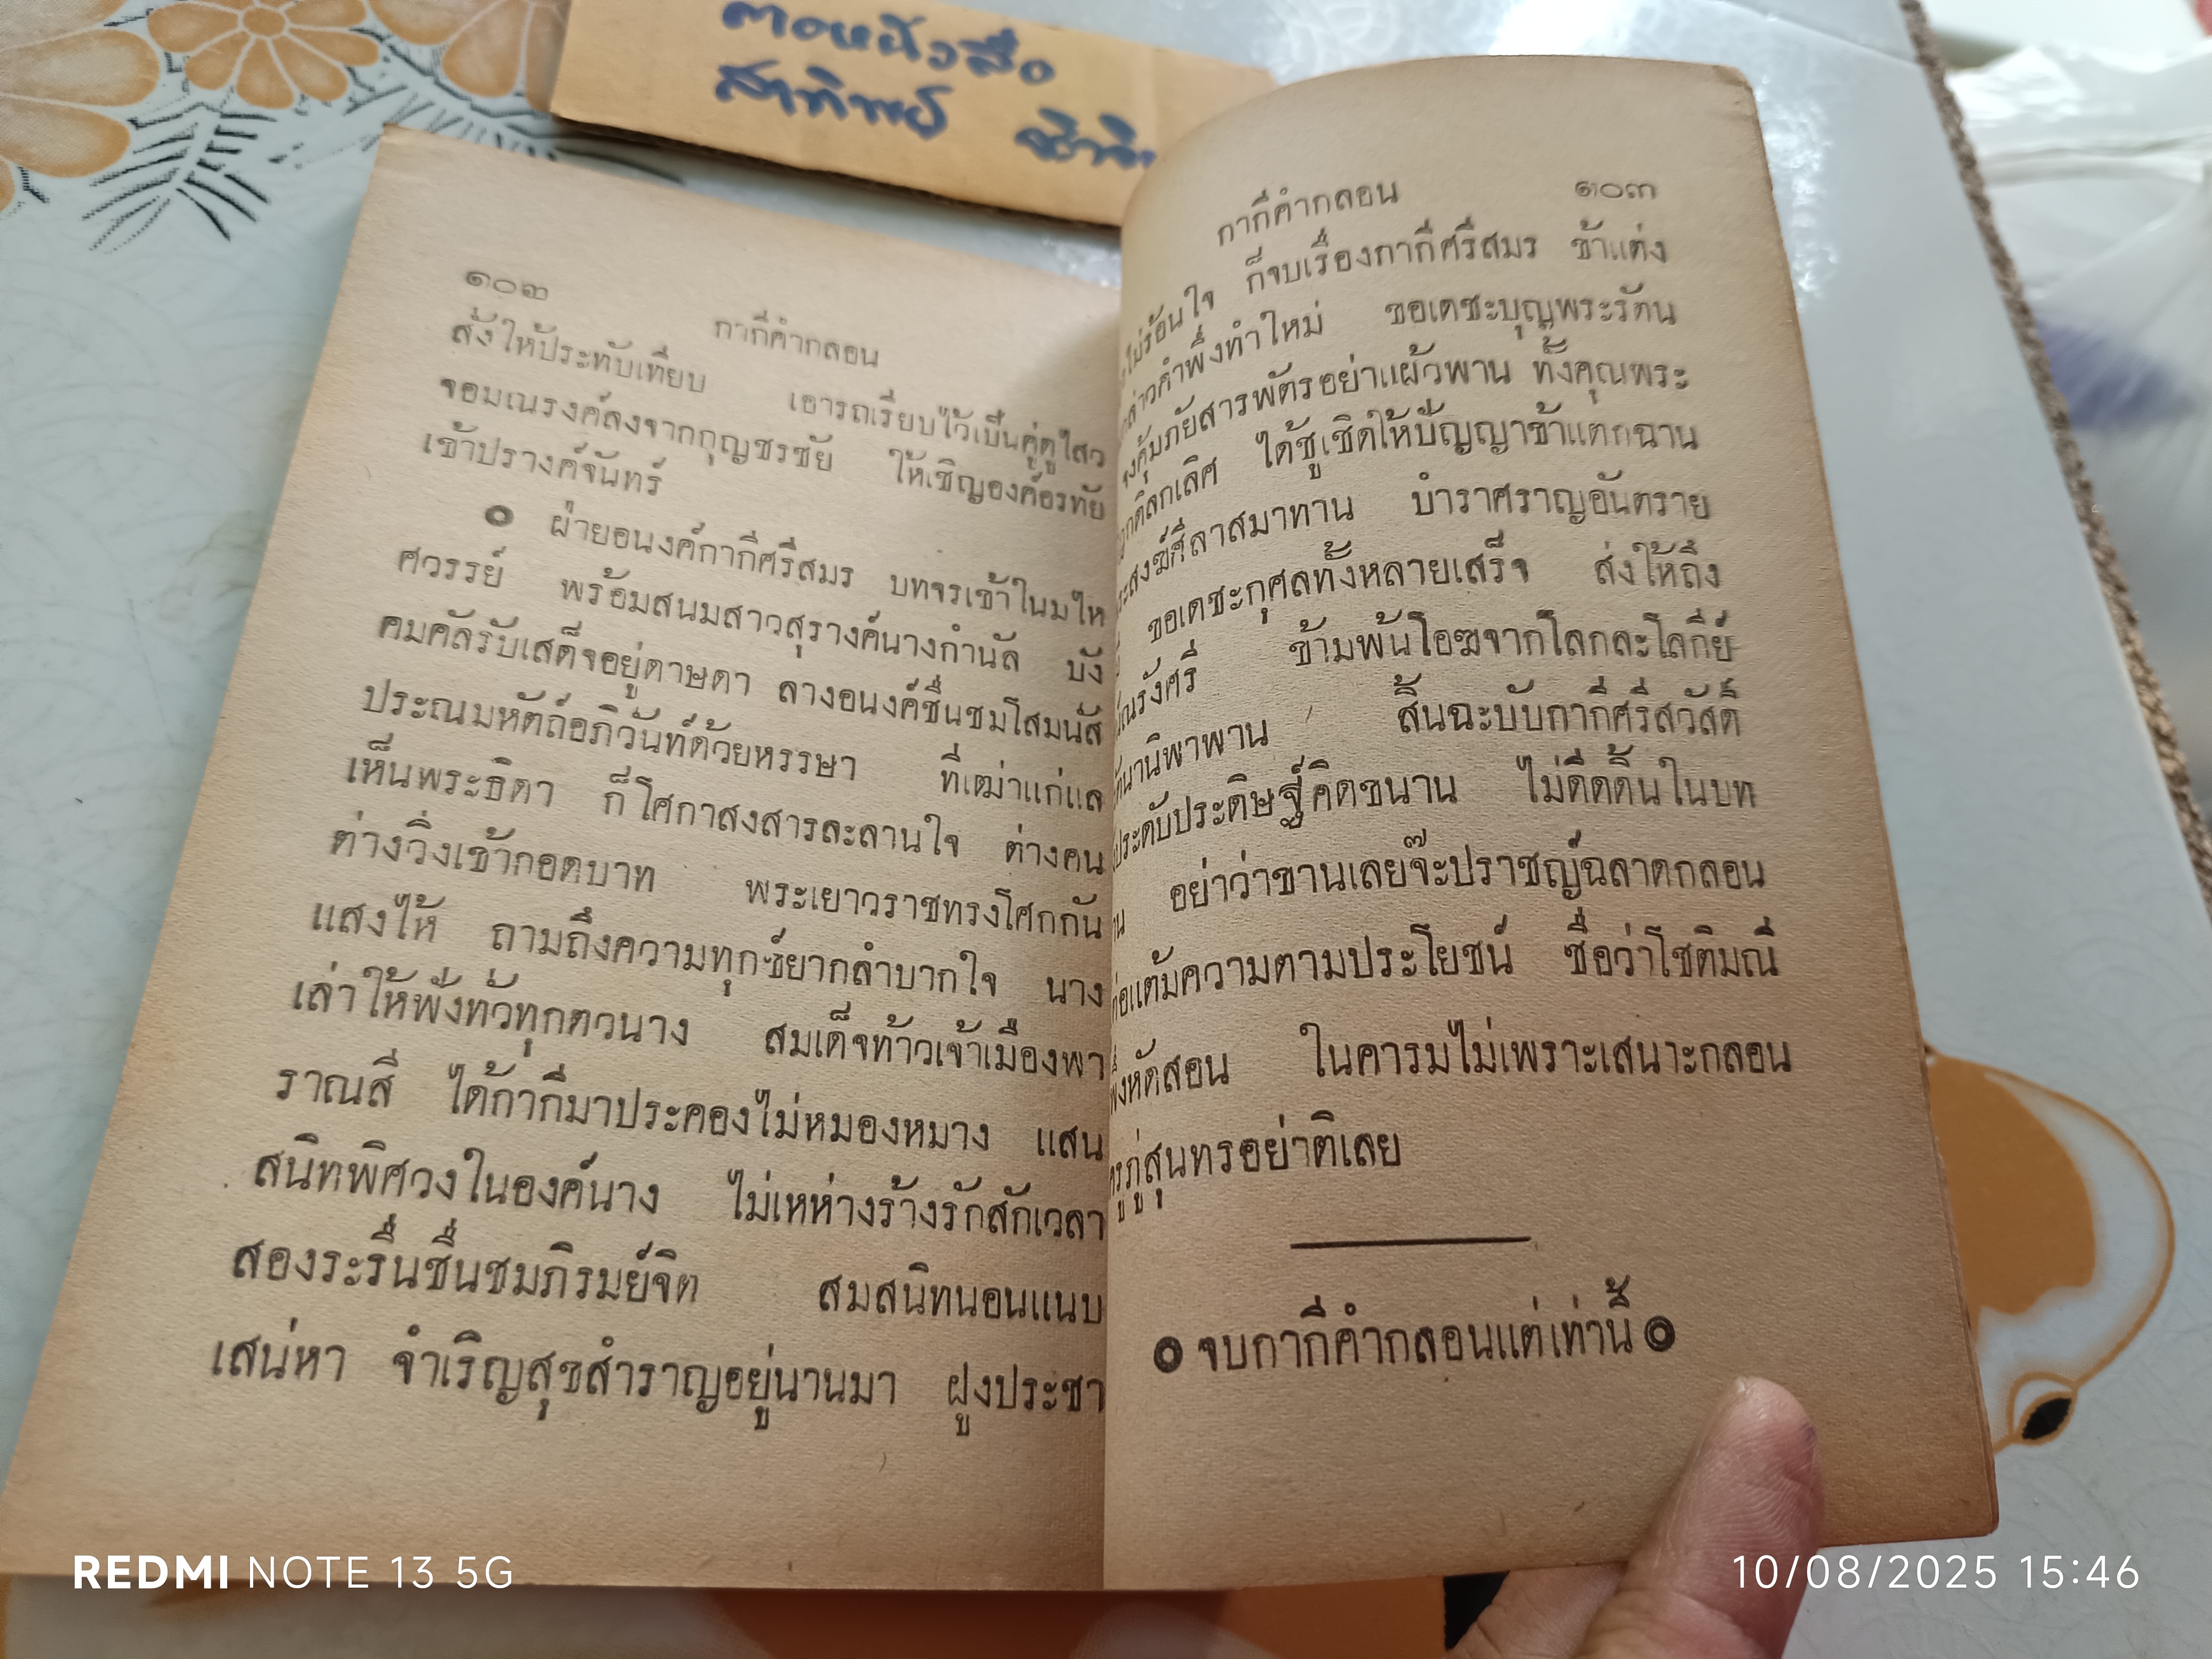 ตอหัวสือ
สาทิพย์
๑๐๒
กากีคำกลอน
สั่งให้ประทับเทียบ เอารถเรียบไว้เป็นคู่ดูไสว
จอมณรงค์ลงจากกุญชรชัย ให้เชิญองค์อรทัย
เข้าปรางค์จันทร์
๐ ฝ่ายอนงค์กากีศรีสมร บทจรเข้าในมไห
ศวรรย์ พร้อมสนมสาวสุรางค์นางกำนัล บัง
คมคัลรับเสด็จอยู่ดาษดา ลางอนงค์ชื่นชมโสมนัส
ประณมหัตถ์อภิวันท์ด้วยหรรษา ที่เฒ่าแก่แล
เห็นพระธิดา ก็โศกาสงสารละลานใจ ต่างคน
ต่างวิ่งเข้ากอดบาท พระเยาวราชทรงโศกกัน
แสงไห้ ถามถึงความทุกข์ยากลำบากใจ นาง
เล่าให้ฟังทั่วทุกตัวนาง สมเด็จท้าวเจ้าเมืองพา
ราณสี ได้กากีมาประคองไม่หมองหมาง แสน
สนิทพิศวงในองค์นาง ไม่เหห่างร้างรักสักเวลา
สองระรื่นชื่นชมภิรมย์จิต สมสนิทนอนแนบ
เสน่หา จำเริญสุขสำราญอยู่นานมา ฝูงประชา
กากีคำกลอน
๑๐๓
ไม่ร้อนใจ ก็จบเรื่องกากีศรีสมร ข้าแต่ง
กล่าวคำพึ่งทำใหม่ ขอเดชะบุญพระรัตน
คุ้มภัยสารพัดรอย่าแผ้วพาน ทั้งคุณพระ
ดิลกเลิศ ได้ชูเชิดให้ปัญญาข้าแตกฉาน
สงฆ์ศีลาสมาทาน บำราศราญอันตราย
ขอเดชะกุศลทั้งหลายเสร็จ ส่งให้ถึง
รังศรี ข้ามพ้นโอฆจากโลกละโลกีย์
นิพาพาน สิ้นฉะบับกากีศรีสวัสดิ์
ประดับประดิษฐ์คิดขนาน ไม่ดีดดิ้นในบท
อย่าว่าขานเลยจ๊ะปราชญ์ฉลาดกลอน
ต่อแต้มความตามประโยชน์ ชื่อว่าโชติมณี
พึ่งหัดสอน ในคารมไม่เพราะเสนาะกลอน
ครูภู่สุนทรอย่าติเลย
๐ จบกากีคำกลอนแต่เท่านี้ ๐
REDMI NOTE 13 5G
10/08/2025 15:46